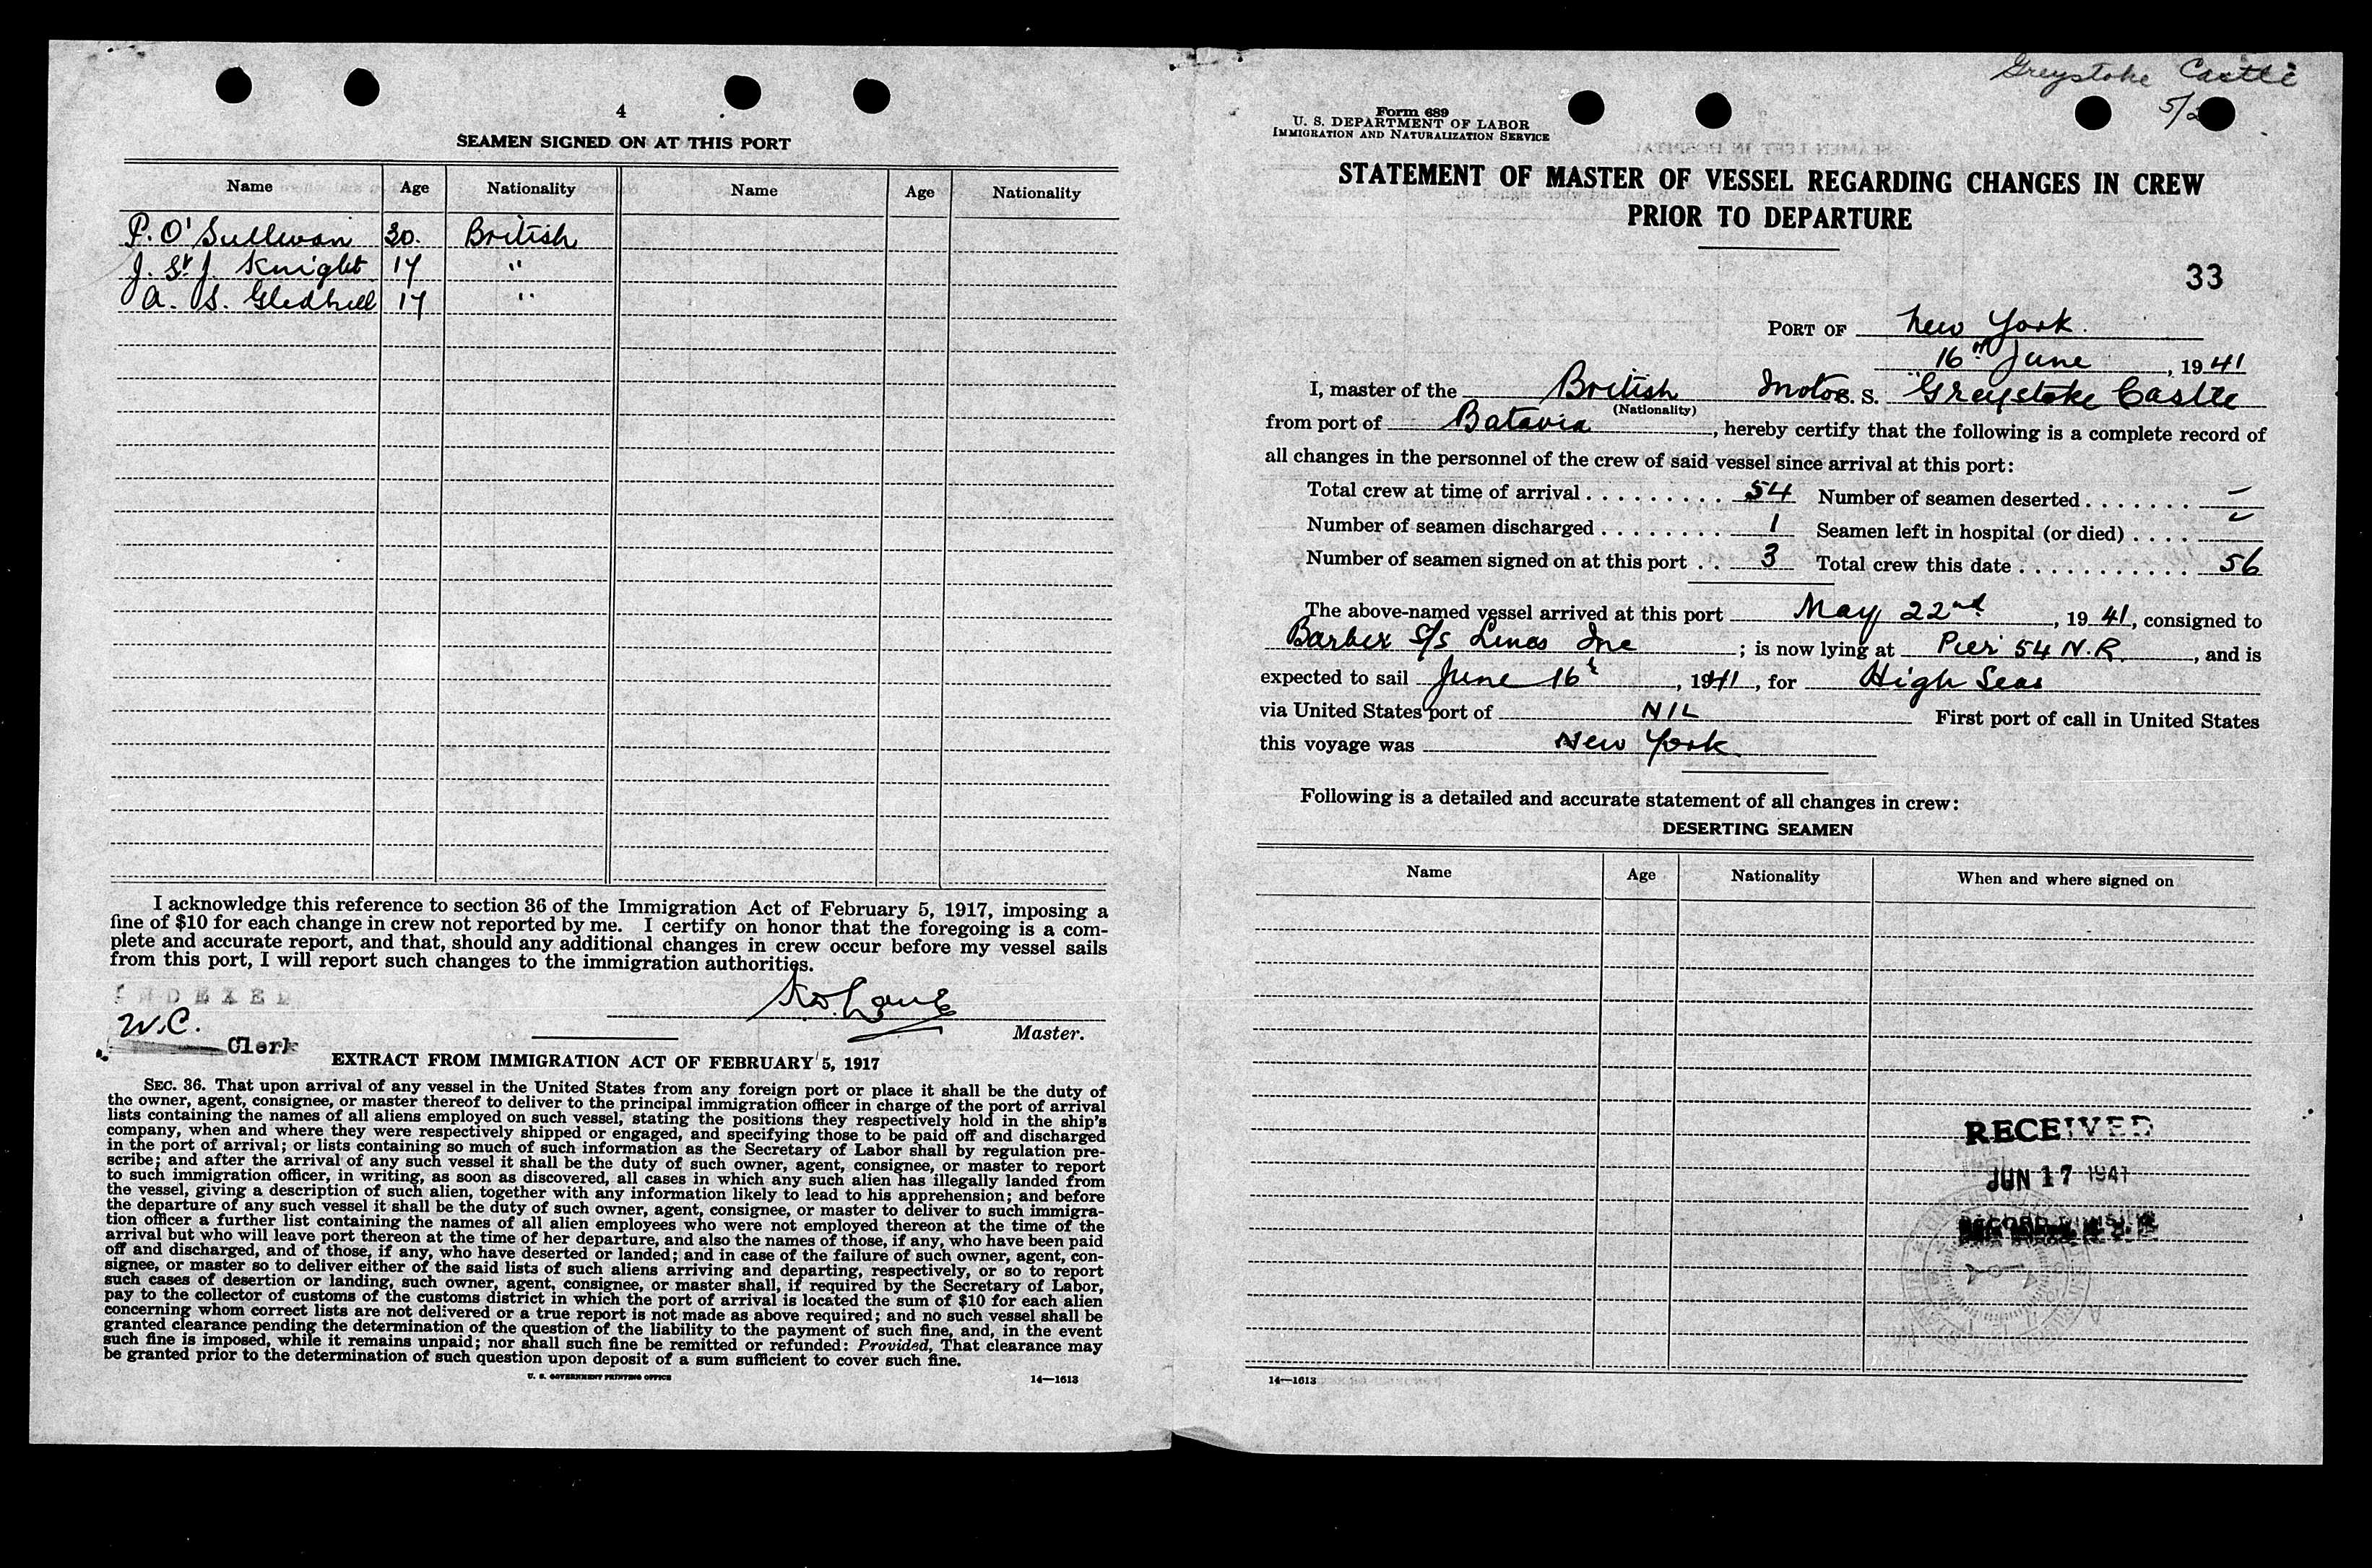 4
SEAMEN SIGNED ON AT THIS PORT
Name Age Nationality Name Age Nationality
P. O'Sullivan 30. British
J. St J. Knight 17 "
A. S. Gledhill 17 "
I acknowledge this reference to section 36 of the Immigration Act of February 5, 1917, imposing a
fine of $10 for each change in crew not reported by me. I certify on honor that the foregoing is a com-
plete and accurate report, and that, should any additional changes in crew occur before my vessel sails
from this port, I will report such changes to the immigration authorities.
INDEXED
W.C.
Clerk
Master.
EXTRACT FROM IMMIGRATION ACT OF FEBRUARY 5, 1917
SEC. 36. That upon arrival of any vessel in the United States from any foreign port or place it shall be the duty of
the owner, agent, consignee, or master thereof to deliver to the principal immigration officer in charge of the port of arrival
lists containing the names of all aliens employed on such vessel, stating the positions they respectively hold in the ship's
company, when and where they were respectively shipped or engaged, and specifying those to be paid off and discharged
in the port of arrival; or lists containing so much of such information as the Secretary of Labor shall by regulation pre-
scribe; and after the arrival of any such vessel it shall be the duty of such owner, agent, consignee, or master to report
to such immigration officer, in writing, as soon as discovered, all cases in which any such alien has illegally landed from
the vessel, giving a description of such alien, together with any information likely to lead to his apprehension; and before
the departure of any such vessel it shall be the duty of such owner, agent, consignee, or master to deliver to such immigra-
tion officer a further list containing the names of all alien employees who were not employed thereon at the time of the
arrival but who will leave port thereon at the time of her departure, and also the names of those, if any, who have been paid
off and discharged, and of those, if any, who have deserted or landed; and in case of the failure of such owner, agent, con-
signee, or master so to deliver either of the said lists of such aliens arriving and departing, respectively, or so to report
such cases of desertion or landing, such owner, agent, consignee, or master shall, if required by the Secretary of Labor,
pay to the collector of customs of the customs district in which the port of arrival is located the sum of $10 for each alien
concerning whom correct lists are not delivered or a true report is not made as above required; and no such vessel shall be
granted clearance pending the determination of the question of the liability to the payment of such fine, and, in the event
such fine is imposed, while it remains unpaid; nor shall such fine be remitted or refunded: Provided, That clearance may
be granted prior to the determination of such question upon deposit of a sum sufficient to cover such fine.
U. S. GOVERNMENT PRINTING OFFICE 14—1613
Greystoke Castle
5/2
Form 689
U. S. DEPARTMENT OF LABOR
IMMIGRATION AND NATURALIZATION SERVICE
STATEMENT OF MASTER OF VESSEL REGARDING CHANGES IN CREW
PRIOR TO DEPARTURE
33
PORT OF New York.
16th June, 1941
I, master of the British Motor S. S. "Greystoke Castle
(Nationality)
from port of Batavia, hereby certify that the following is a complete record of
all changes in the personnel of the crew of said vessel since arrival at this port:
Total crew at time of arrival . . . . . . . . . 54 Number of seamen deserted . . . . . . . —
Number of seamen discharged . . . . . . . . 1 Seamen left in hospital (or died) . . . . —
Number of seamen signed on at this port . . 3 Total crew this date . . . . . . . . . . . . 56
The above-named vessel arrived at this port May 22nd, 1941, consigned to
Barber S/S Lines Inc; is now lying at Pier 54 N.R., and is
expected to sail June 16t, 1941, for High Seas
via United States port of NIL First port of call in United States
this voyage was New York
Following is a detailed and accurate statement of all changes in crew:
DESERTING SEAMEN
Name Age Nationality When and where signed on
RECEIVED
JUN 17 1941
RECORD DIVISION
14—1613